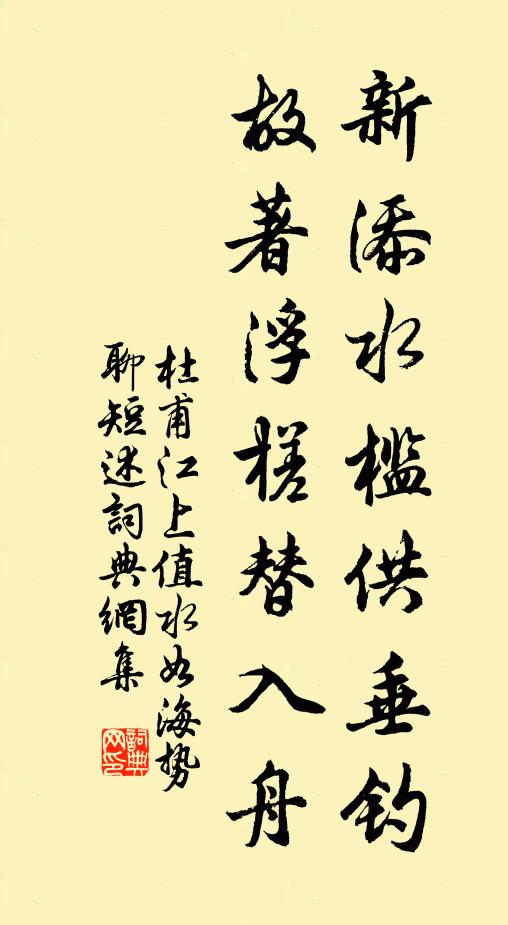 新添水檻供垂釣
故著浮槎替入舟
杜甫江上值水如海勢
聊短述詞典網集
詞典
网印